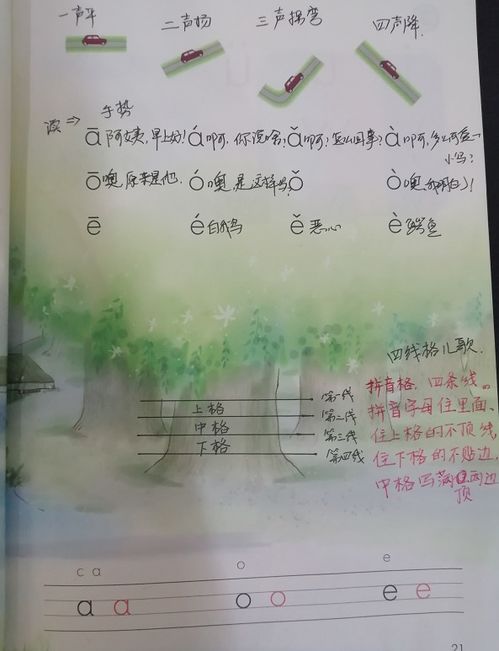 一声平 二声扬 三声拐弯 四声降
手势
ā 阿姨,早上好! á 啊,你说啥? ǎ 啊?怎么回事? à 啊,多么可爱
小马!
ō 噢,原来是他. ó 噢,是这样吗? ǒ ò 噢,我明白了!
ē é 白鹅 ě 恶心 è 鳄鱼
四线格儿歌.
第一线
上格
第二线
中格
第三线
下格
第四线
拼音格,四条线。
拼音字母住里面,
住上格的不顶线,
住下格的不贴边,
中格写满两边
顶
c ɑ o e
ɑ ɑ o o e e
21